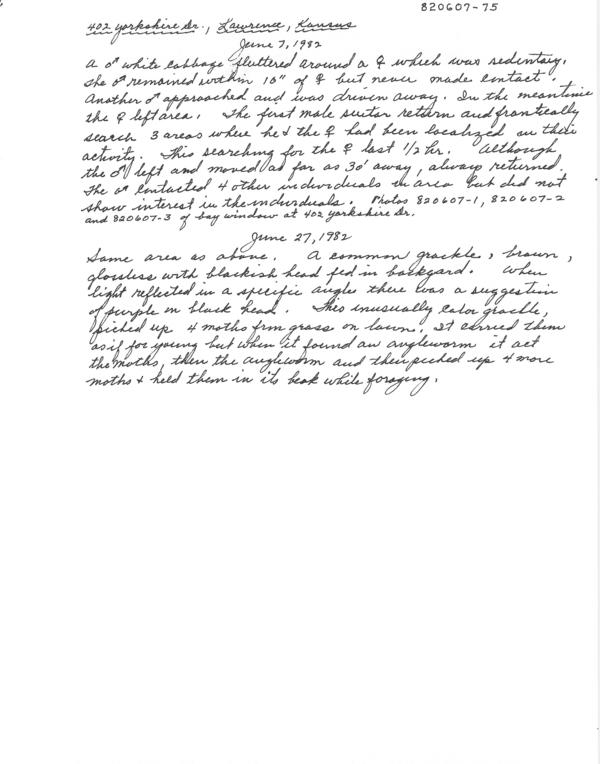 820607-75
402 Yorkshire Dr., Lawrence, Kansas
June 7, 1982
A ♂ white cabbage fluttered around a ♀ which was sedentary.
The ♂ remained within 10" of ♀ but never made contact.
Another ♂ approached and was driven away. In the meantime
the ♀ left area. The first male suitor return and frantically
search 3 areas where he & the ♀ had been localized in their
activity. This searching for the ♀ last 1/2 hr. Although
the ♂ left and moved as far as 30' away, always returned.
The ♂ contacted 4 other individuals in area but did not
show interest in the individuals. Photos 820607-1, 820607-2
and 820607-3 of bay window at 402 Yorkshire Dr.
June 27, 1982
Same area as above. A common grackle, brown,
glossless with blackish head fed in backyard. When
light reflected in a specific angle there was a suggestion
of purple on black head. This inusually color grackle,
picked up 4 moths frm grass on lawn. It carried them
as if for young but when it found an angleworm it act
the moths, then the angleworm and then picked up 4 more
moths & held them in its beak while foraging.